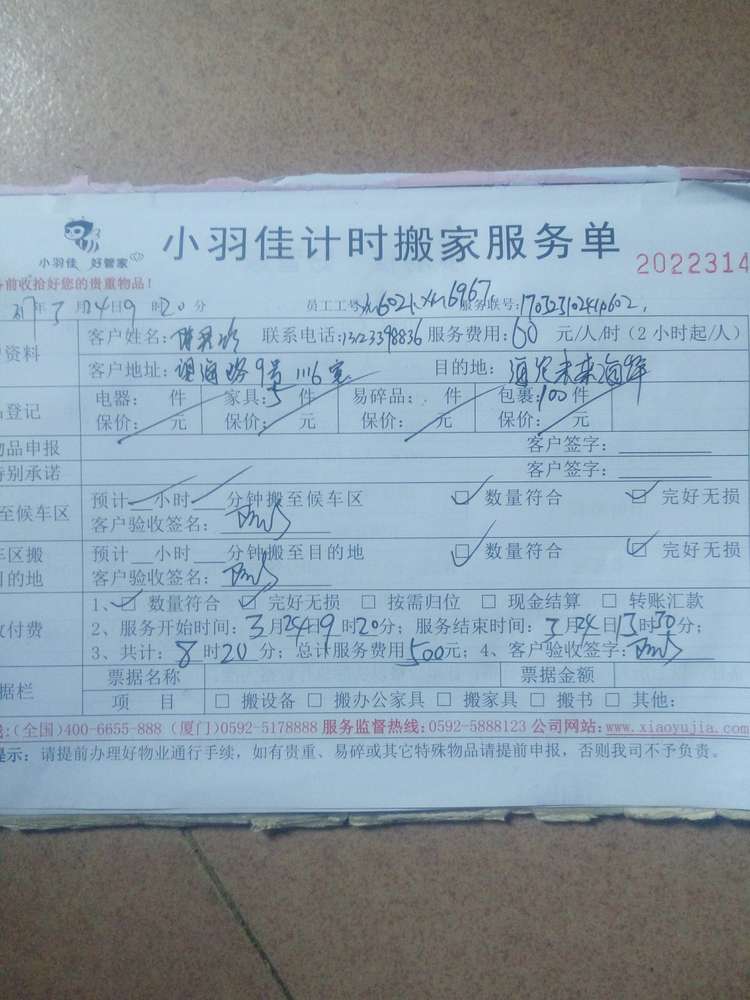 小羽佳 好管家
小羽佳计时搬家服务单
2022314
前收拾好您的贵重物品!
17年3月24日9时20分 员工工号:xm6021.xm6967 服务联号:170323102410602.
资料 客户姓名: 联系电话:13123398836 服务费用:60元/人/时(2小时起/人)
客户地址:望海路9号1116室 目的地:海沧未来海岸
登记 电器: 件 家具:5件 易碎品: 件 包裹:100件
保价: 元 保价: 元 保价: 元 保价: 元
物品申报 客户签字:
特别承诺 客户签字:
至候车区 预计 小时 分钟搬至候车区 ☑ 数量符合 ☑ 完好无损
客户验收签名:
车区搬 预计 小时 分钟搬至目的地 ☑ 数量符合 ☑ 完好无损
目的地 客户验收签名:
1、☑ 数量符合 ☑ 完好无损 □ 按需归位 □ 现金结算 □ 转账汇款
付费 2、服务开始时间:3月24日9时20分;服务结束时间:3月24日13时30分;
3、共计:8时20分;总计服务费用500元;4、客户验收签字:
据栏 票据名称 票据金额
项 目 □ 搬设备 □ 搬办公家具 □ 搬家具 □ 搬书 □ 其他:
线:(全国)400-6655-888 (厦门)0592-5178888 服务监督热线:0592-5888123 公司网站:www.xiaoyujia.com
提示:请提前办理好物业通行手续,如有贵重、易碎或其它特殊物品请提前申报,否则我司不予负责。